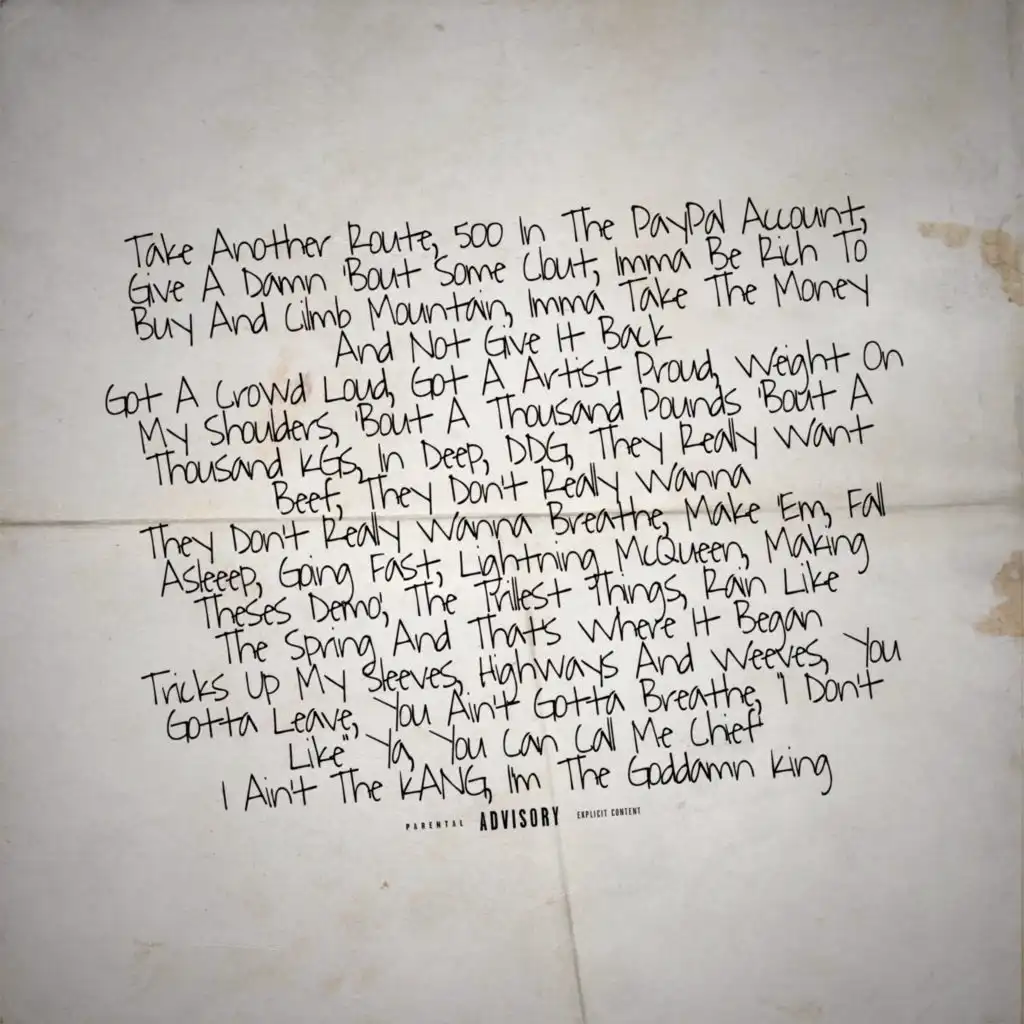 Take Another Route, 500 In The PayPal Account,
Give A Damn 'Bout Some Clout, Imma Be Rich To
Buy And Cilmb Mountain, Imma Take The Money
And Not Give It Back
Got A Crowd Loud, Got A Artist Proud, Weight On
My Shoulders, 'Bout A Thousand Pounds 'Bout A
Thousand KGS, In Deep, DDG, They Really Want
Beef, They Don't Really Wanna
They Don't Really Wanna Breathe, Make 'Em, Fall
Asleeep, Going Fast, Lightning McQueen, Making
Theses Demo', The Trillest Things, Rain Like
The Spring And That's Where It Began
Tricks Up My Sleeves, Highways And Weeves, You
Gotta Leave, You Ain't Gotta Breathe, "I Don't
Like" Ya, You Can Call Me Chief
I Ain't The KANG, I'm The Goddamn King
PARENTAL ADVISORY EXPLICIT CONTENT